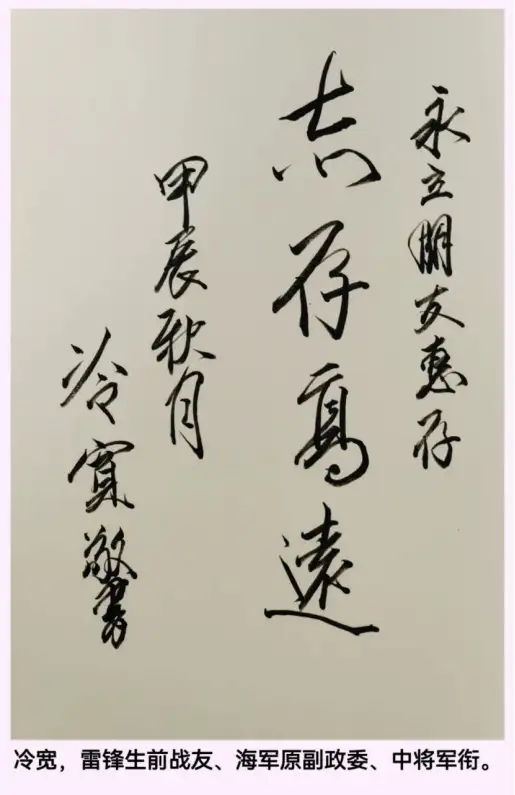 永立朋友惠存
志存高遠
甲辰秋月
冷寬敬書
冷宽，雷锋生前战友、海军原副政委、中将军衔。